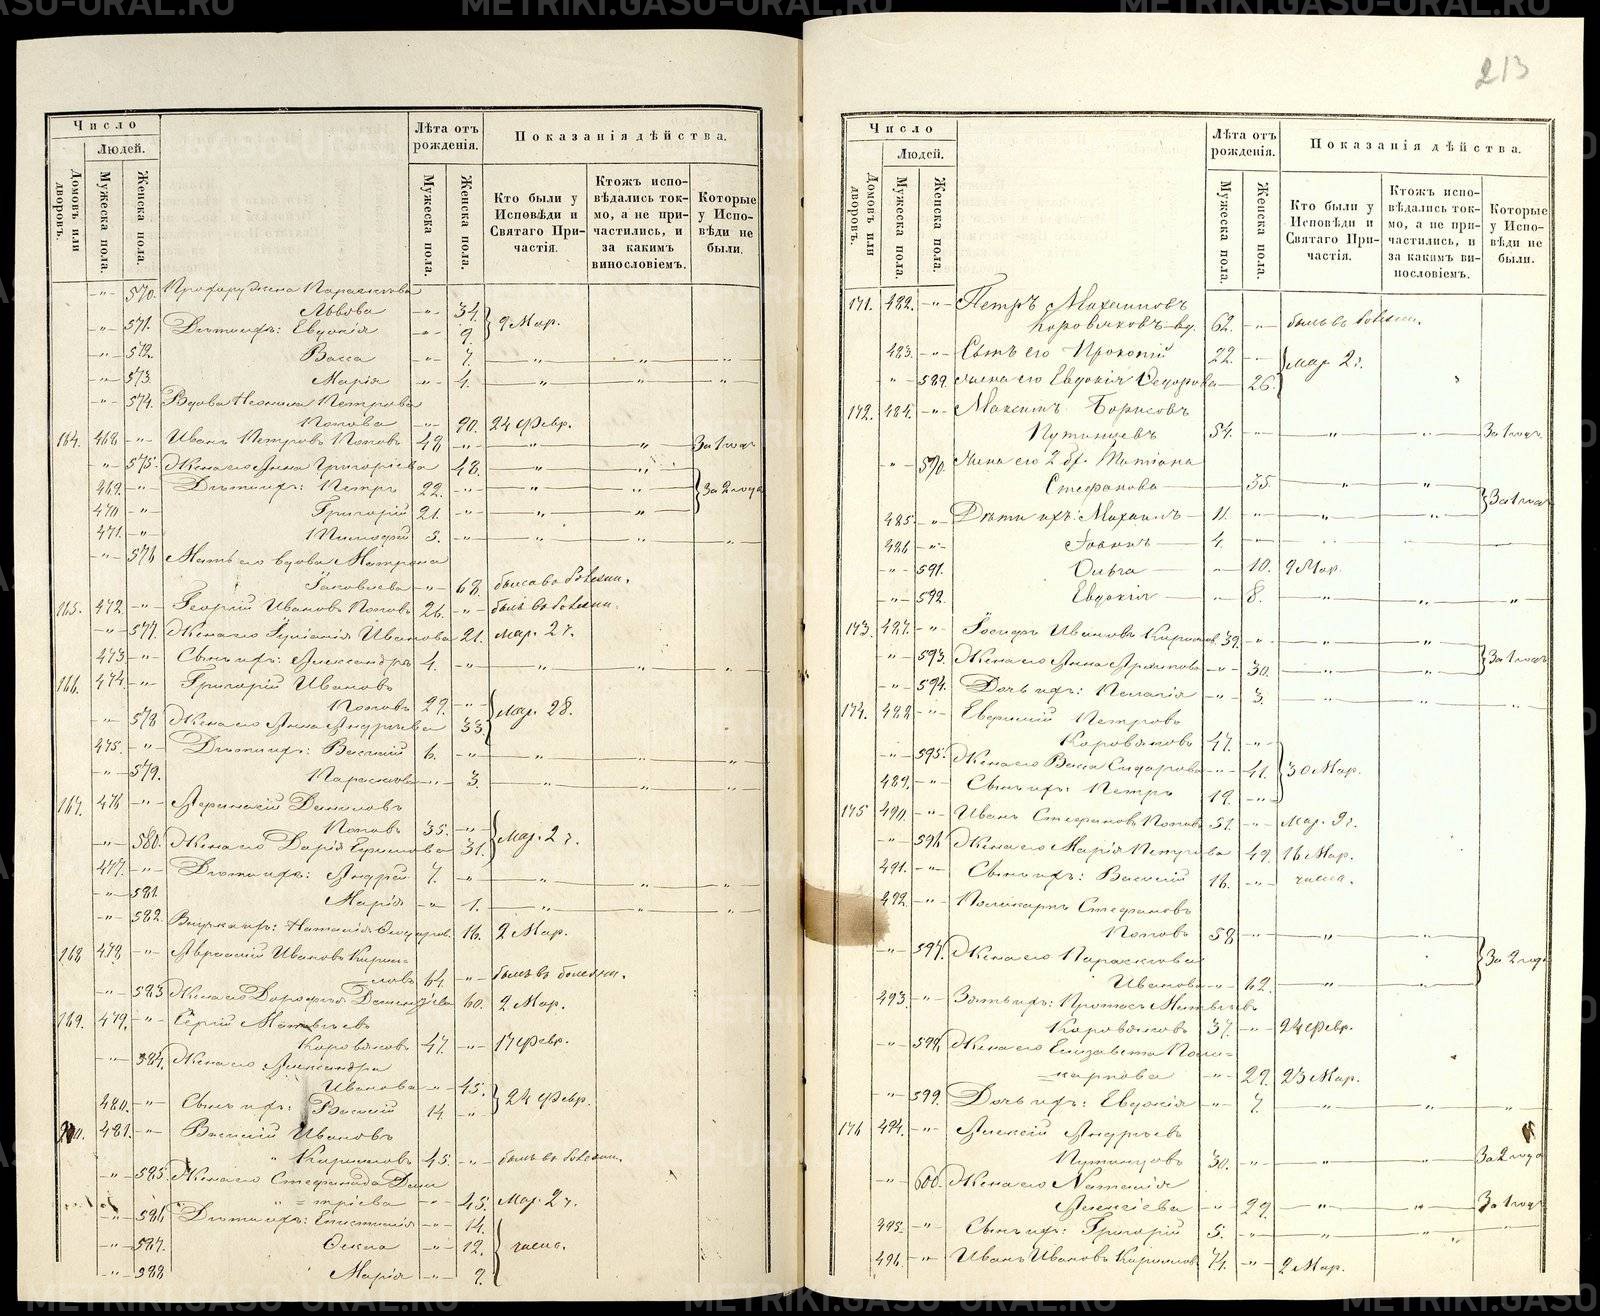 213
Число
Людей.
Домовъ или дворовъ.
Мужеска пола.
Женска пола.
Лѣта отъ рожденія.
Мужеска пола.
Женска пола.
Показанія дѣйства.
Кто были у Исповѣди и Святаго Причастія.
Ктожъ исповѣдались токмо, а не причастились, и за какимъ винословіемъ.
Которые у Исповѣди не были.
-"- 570.
Львова -"- 34.
-"- 571. Дѣти ихъ: Евдокія -"- 9. 9 Мар.
-"- 572. Васса -"- 7. -"- -"- -"-
-"- 573. Марія -"- 4. -"- -"- -"-
-"- 574. Вдова Петрова
Попова -"- 90. 24 Февр.
164. 468. -"- Иванъ Петровъ Поповъ 48. -"- -"- -"- За 1 годъ
-"- 575. Жена его Анна Григоріева 48. -"- -"-
469. -"- Дѣти ихъ: Петръ 22. -"- -"- -"- За 2 года
470 -"- Григорій 21. -"- -"- -"-
471. -"- 3. -"- -"- -"- -"-
-"- 576 Мать его вдова Матрона
Іаковлева -"- 68. была въ болезни.
165. 472. -"- Георгій Ивановъ Поповъ 26. -"- былъ въ болезни.
-"- 577. Жена его Іуліанія Иванова 21. Мар. 2 ч.
473 -"- Сынъ ихъ: Александръ 4. -"- -"- -"- -"-
166. 474. -"- Григорій Ивановъ
Поповъ 29. -"- Мар. 28.
-"- 578 Жена его Анна Андреева 33.
475. -"- Дѣти ихъ: Василій 6. -"- -"- -"- -"-
-"- 579. Параскева -"- 3. -"- -"- -"-
167. 476 -"- Даниловъ
Поповъ 35. -"- Мар. 2 ч.
-"- 580. Жена его Дарія Ефимова 31.
477. -"- Дѣти ихъ: Андрей 7. -"- -"- -"- -"-
-"- 581 Марія -"- 1. -"- -"- -"-
-"- 582. Внучка ихъ: Наталія 16. 2 Мар.
168 478. -"- Ивановъ Кирил-
ловъ 64 -"- былъ въ болезни.
-"- 583 Жена его Дорофея Дементіева 60. 2 Мар.
169. 479. -"- Сергій Матвѣевъ
Коровяковъ 47. -"- 17 Февр.
-"- 584. Жена его Александра
Иванова -"- 45. 24 Февр.
480. -"- Сынъ ихъ: Василій 14 -"-
481. -"- Василій Ивановъ
Кириловъ 45. -"- былъ въ болезни.
-"- 585 Жена его Стефанида Дими
= тріева -"- 45. Мар. 2 ч.
-"- 586 Дѣти ихъ: Епистимія -"- 14.
-"- 587. Ѳекла -"- 12. числ.
-"- 588 Марія -"- 9.
Число
Людей.
Домовъ или дворовъ.
Мужеска пола.
Женска пола.
Лѣта отъ рожденія.
Мужеска пола.
Женска пола.
Показанія дѣйства.
Кто были у Исповѣди и Святаго Причастія.
Ктожъ исповѣдались токмо, а не причастились, и за какимъ винословіемъ.
Которые у Исповѣди не были.
171. 482. -"- Петръ Михаиловъ
Коровяковъ 62. -"- былъ въ болезни.
483. -"- Сынъ его Прокопій 22. -"- Мар. 2 ч.
-"- 589. Жена его Евдокія Ѳедорова 26.
172. 484. -"- Максимъ Борисовъ
Путинцевъ 54. -"- -"- -"- За 1 годъ
-"- 590. Жена его 2 бр. Татіана
Стефанова 35. -"- -"- За 1 годъ
485. -"- Дѣти ихъ: Михаилъ 11. -"- -"- -"-
486 -"- Іоаннъ 4. -"- -"- -"- -"-
-"- 591. Ольга -"- 10. 9 Мар.
-"- 592. Евдокія -"- 8. -"- -"- -"-
173. 487. -"- Іосифъ Ивановъ Кириловъ 39. -"- -"- -"- За 1 годъ
-"- 593. Жена его Анна -"- 30. -"- -"-
-"- 594. Дочь ихъ: Пелагія -"- 3. -"- -"- -"-
174. 488. -"- Евфимій Петровъ
Коровяковъ 47. -"- 30 Мар.
-"- 595. Жена его Васса Сидорова -"- 41.
489. -"- Сынъ ихъ: Петръ 19. -"-
175 490. -"- Иванъ Стефановъ Поповъ 51. -"- Мар. 9 ч.
-"- 596 Жена его Марія Петрова 49. 16 Мар.
491. -"- Сынъ ихъ: Василій 16. -"- числа.
492. -"- Поликарпъ Стефановъ
Поповъ 58 -"- -"- -"- За 2 года
-"- 597. Жена его Параскева
Иванова -"- 62. -"- -"-
493. -"- Зять ихъ: Матвѣевъ
Коровяковъ 37. -"- 24 Февр.
-"- 598. Жена его Елизавета Поли=
=карпова -"- 29. 23 Мар.
-"- 599. Дочь ихъ: Евдокія -"- 7. -"- -"- -"-
176 494. -"- Алексій Андреевъ
Путинцовъ 30. -"- -"- -"- За 2 года
-"- 600. Жена его Наталія
Алексіева -"- 29. -"- -"- За 1 годъ
495. -"- Сынъ ихъ: Григорій 5. -"- -"- -"- -"-
496. -"- Иванъ Ивановъ Кириловъ 74. -"- 2 Мар.
METRIKI.GASU-URAL.RU